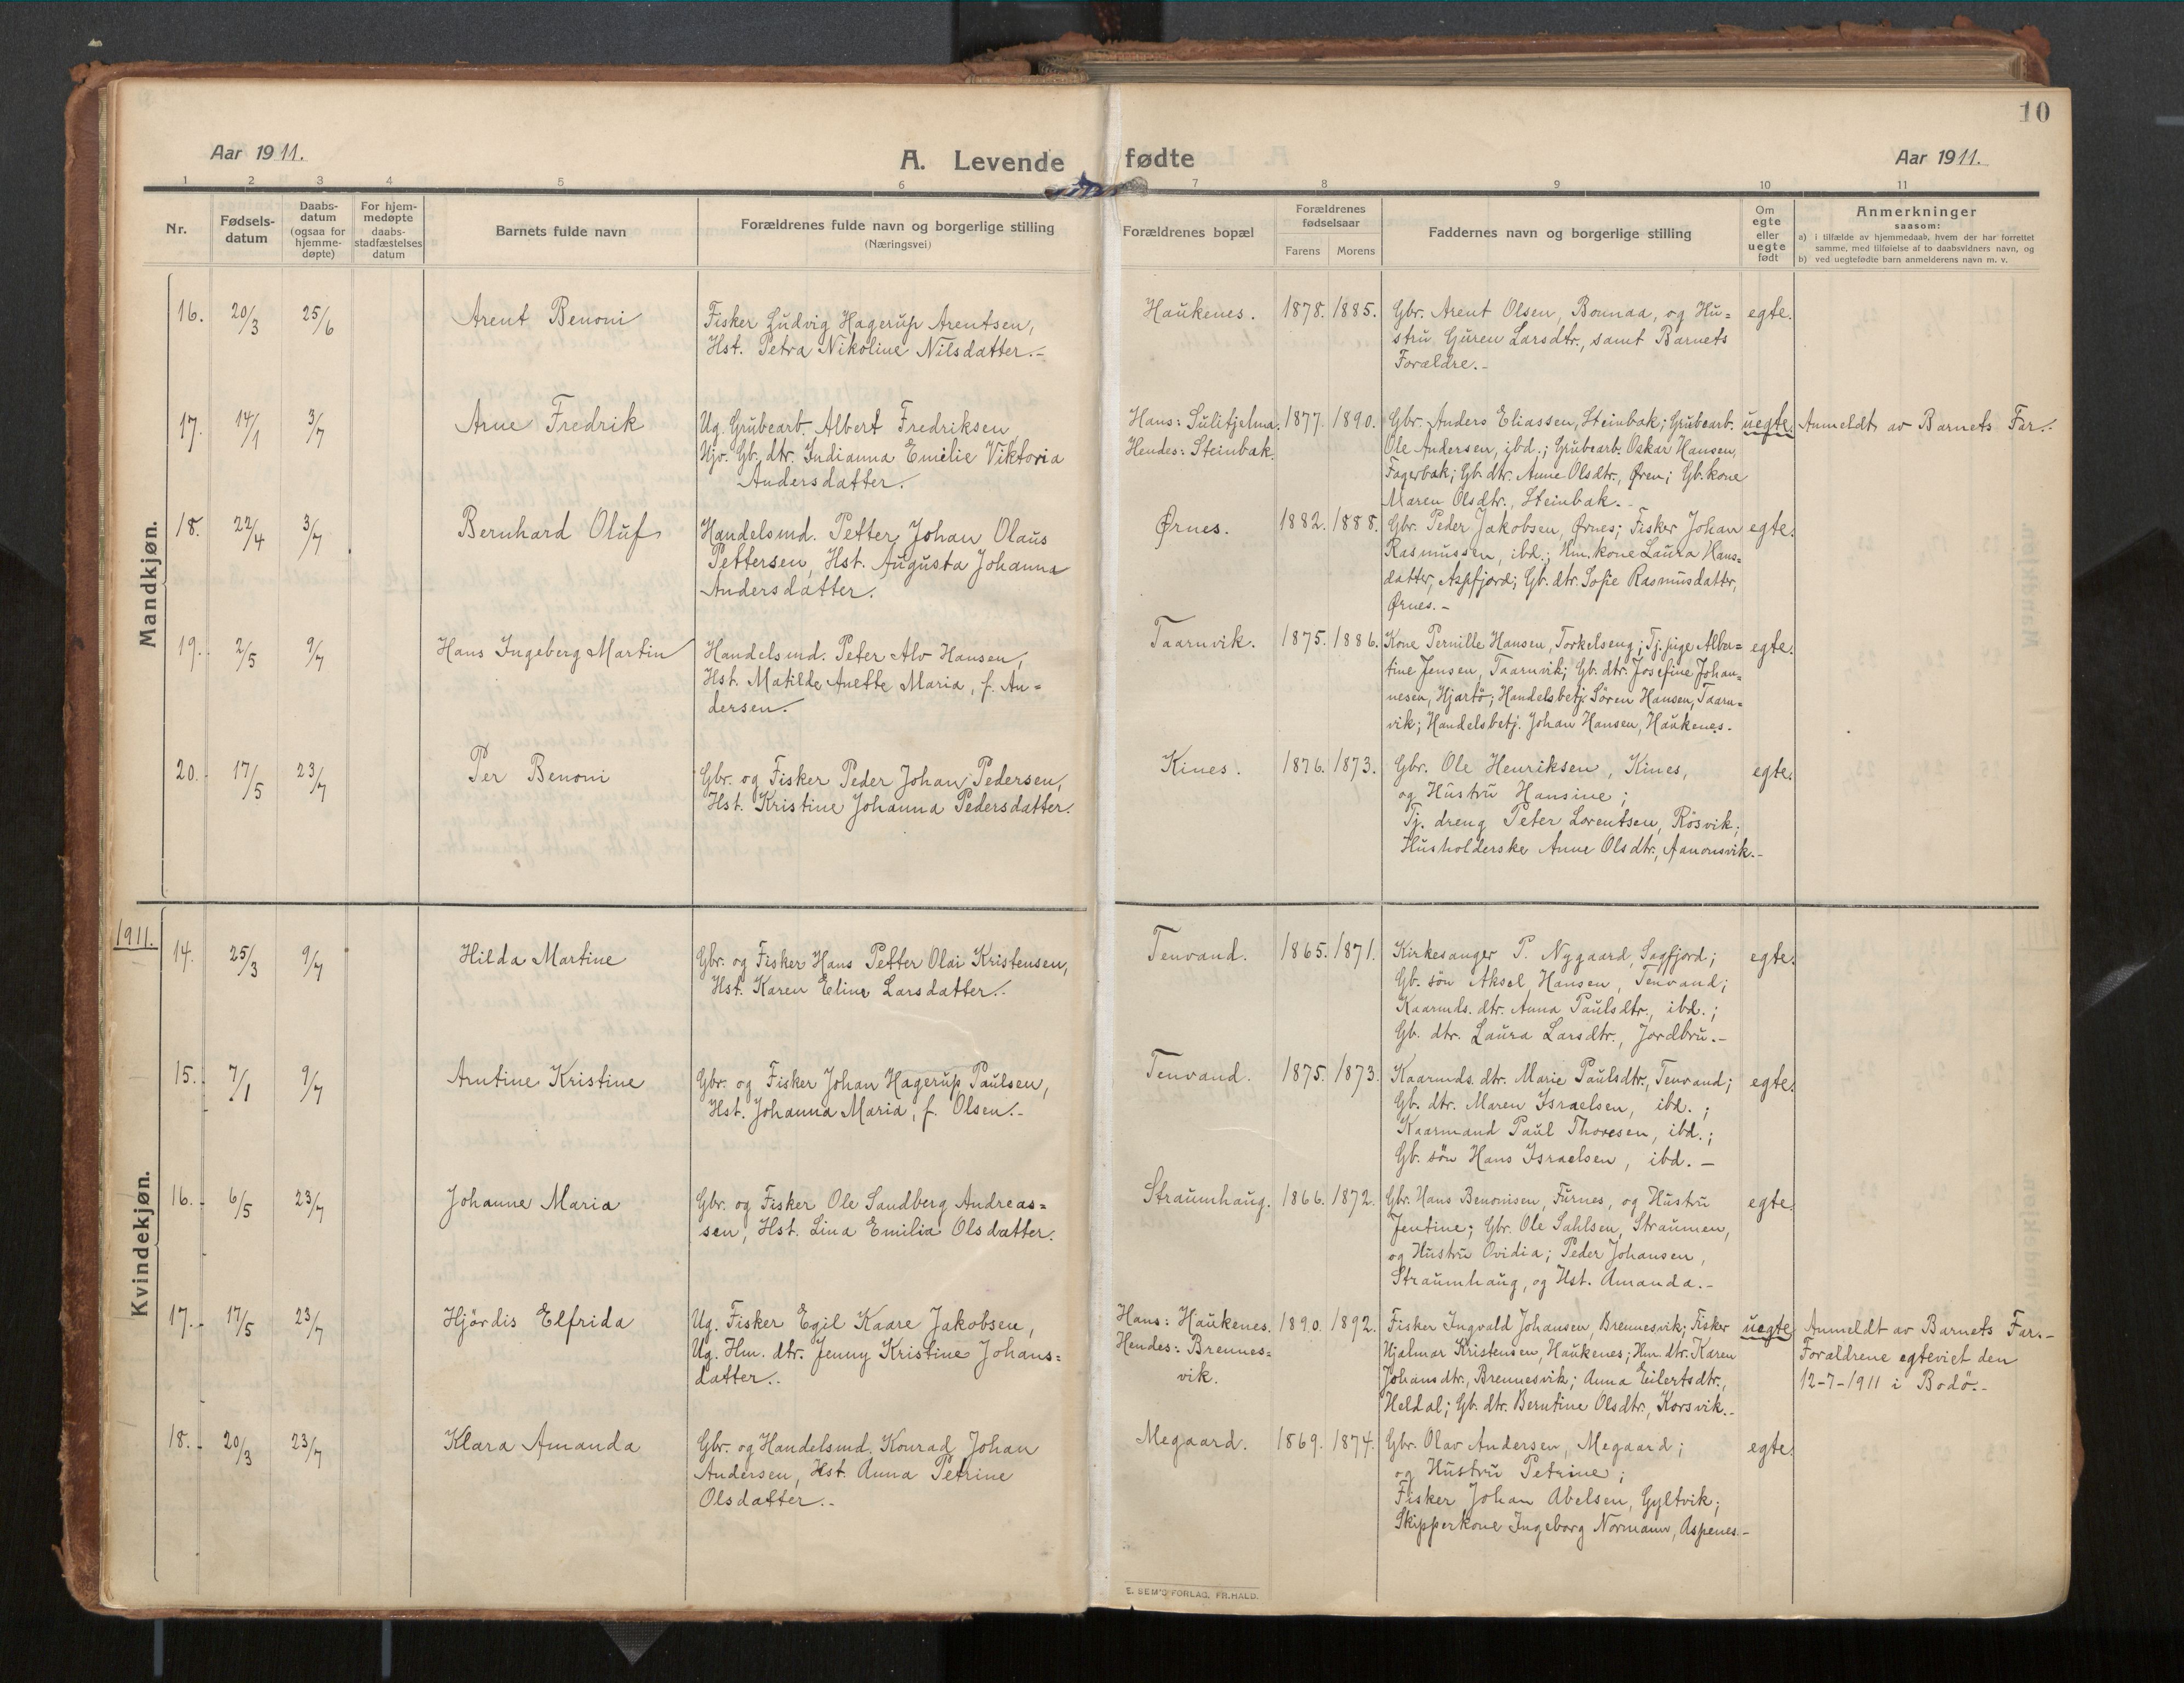 10
Aar 1911.
A. Levende fødte
Aar 1911.
1 2 3 4 5 6 7 8 9 10 11
Nr.
Fødsels-
datum
Daabs-
datum
(ogsaa for
hjemme-
døpte)
For hjem-
medøpte
daabs-
stadfæstelses
datum
Barnets fulde navn
Forældrenes fulde navn og borgerlige stilling
(Næringsvei)
Forældrenes bopæl
Forældrenes
fødselsaar
Farens Morens
Faddernes navn og borgerlige stilling
Om
egte
eller
uegte
født
Anmerkninger
saasom:
a) i tilfælde av hjemmedaab, hvem der har forrettet
samme, med tilføielse af to daabsvidners navn, og
b) ved uegtefødte barn anmelderens navn m. v.
Mandkjøn.
16. 20/3 25/6 Arent Benoni
Fisker Ludvig Hagerup Arentsen,
Hst. Petra Nikoline Nilsdatter.-
Haukenes. 1878. 1885.
Gbr. Arent Olsen, Bonnaa, og Hu=
stru Guren Larsdtr., samt Barnets
Forældre.-
egte.
17. 14/1 3/7 Arne Fredrik
Ug. Grubearb. Albert Fredriksen
Ugv. Gb. dtr. Indianna Emelie Viktoria
Andersdatter.
Hans: Sulitjelma.
Hendes: Steinbak.
1877. 1890.
Gbr. Anders Eliassen, Steinbak; Grubearb.
Ole Andersen, ibd.; Grubearb. Oskar Hansen,
Fagerbak; Gb. dtr. Anne Olsdtr., Øren; Gb. kone
Maren Olsdtr., Steinbak.-
uegte. Anmeldt av Barnets Far.-
18. 22/4 3/7 Bernhard Oluf
Handelsmd. Petter Johan Olaus
Pettersen, Hst. Augusta Johanna
Andersdatter.
Ørnes. 1882. 1888.
Gbr. Peder Jakobsen, Ørnes; Fisker Johan
Rasmussen, ibd.; Hm. kone Laura Hans=
datter, Aspfjord; Gb. dtr. Sofie Rasmusdatter,
Ørnes.-
egte.
19. 2/5 9/7 Hans Ingeberg Martin
Handelsmd. Peter Alv Hansen,
Hst. Matilde Anette Maria, f. An=
dersen.
Taarnvik. 1875. 1886.
Kone Pernille Hansen, Torkelseng; Tj. pige Alber=
tine Jensen, Taarnvik; Gb. dtr. Josefine Johan=
nesen, Hjartö; Handelsbetj. Sören Hansen, Taarn=
vik; Handelsbetj. Johan Hansen, Haukenes.-
egte.
20. 17/5 23/7 Per Benoni
Gbr. og Fisker Peder Johan Pedersen,
Hst. Kristine Johanna Pedersdatter.
Kines. 1876. 1873.
Gbr. Ole Henriksen, Kines,
og Hustru Hansine;
Tj. dreng Peter Lorentsen, Rösvik;
Husholderske Anne Olsdtr., Aanonsvik.-
egte.
1911.
Kvindekjøn.
14. 25/3 9/7 Hilda Martine
Gbr. og Fisker Hans Petter Olai Kristensen,
Hst. Karen Eline Larsdatter.-
Tenvand. 1865. 1871.
Kirkesanger P. Nygaard, Sagfjord;
Gb. sön Aksel Hansen, Tenvand;
Kaarmds. dtr. Anna Paulsdtr., ibd.;
Gb. dtr. Laura Larsdtr., Jordbru.-
egte.
15. 7/1 9/7 Arntine Kristine
Gbr. og Fisker Johan Hagerup Paulsen,
Hst. Johanna Maria, f. Olsen.-
Tenvand. 1875. 1873.
Kaarmds. dtr. Marie Paulsdtr., Tenvand;
Gb. dtr. Maren Israelsen, ibd.;
Kaarmand Paul Thoresen, ibd.;
Gb. sön Hans Israelsen, ibd.-
egte.
16. 6/5 23/7 Johanne Maria
Gbr. og Fisker Ole Sandberg Andreas=
sen, Hst. Lina Emilia Olsdatter.
Straumhaug. 1866. 1872.
Gbr. Hans Benonisen, Furnes, og Hustru
Jentine; Gbr. Ole Sahlsen, Straumen,
og Hustru Ovidia; Peder Johansen,
Straumhaug, og Hst. Amanda.-
egte.
17. 17/5 23/7 Hjördis Elfrida
Ug. Fisker Egil Kaare Jakobsen,
Ug. Hm. dtr. Jenny Kristine Johans=
datter.-
Hans: Haukenes.
Hendes: Brennes=
vik.
1890. 1892.
Fisker Ingvald Johansen, Brennesvik; Fisker
Hjalmar Kristensen, Haukenes; Hm. dtr. Karen
Johansdtr., Brennesvik; Anna Eilertsdtr.,
Heldal; Gb. dtr. Berntine Olsdtr., Korsvik.-
uegte. Anmeldt av Barnets Far.-
Forældrene egteviet den
12-7-1911 i Bodö.-
18. 20/3 23/7 Klara Amanda
Gbr. og Handelsmd. Konrad Johan
Andersen, Hst. Anna Petrine
Olsdatter.-
Megaard. 1869. 1874.
Gbr. Olav Andersen, Megaard;
og Hustru Petrine;
Fisker Johan Abelsen, Gyltvik;
Skipperkone Ingeborg Normann, Aspenes.-
egte.
E. SEM'S FORLAG, FR.HALD.